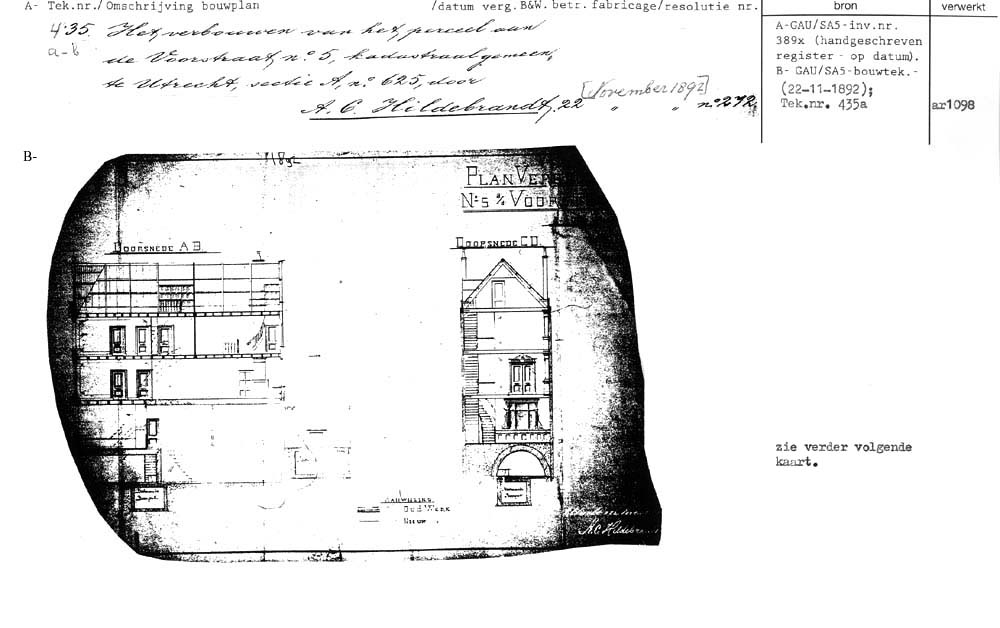 A- Tek.nr./Omschrijving bouwplan /datum verg.B&W.betr.fabricage/resolutie nr. bron verwerkt
435. Het verbouwen van het perceel aan
a-b
de Voorstraat, n:o 5, kadastraal gemeen,
te Utrecht, sectie A, n:o 625, door
[November 1892]
A. C. Hildebrandt, 22 " " n:o 272.
A-GAU/SA5-inv.nr.
389x (handgeschreven
register - op datum).
B- GAU/SA5-bouwtek.-
(22-11-1892);
Tek.nr. 435a
ar1098
B-
1892
PLAN VER
N:s 5 a/d VOOR
DOORSNEDE A B.
DOORSNEDE C D.
AANWIJZING.
Oud Werk
Nieuw
A. C. Hildebra
zie verder volgende
kaart.